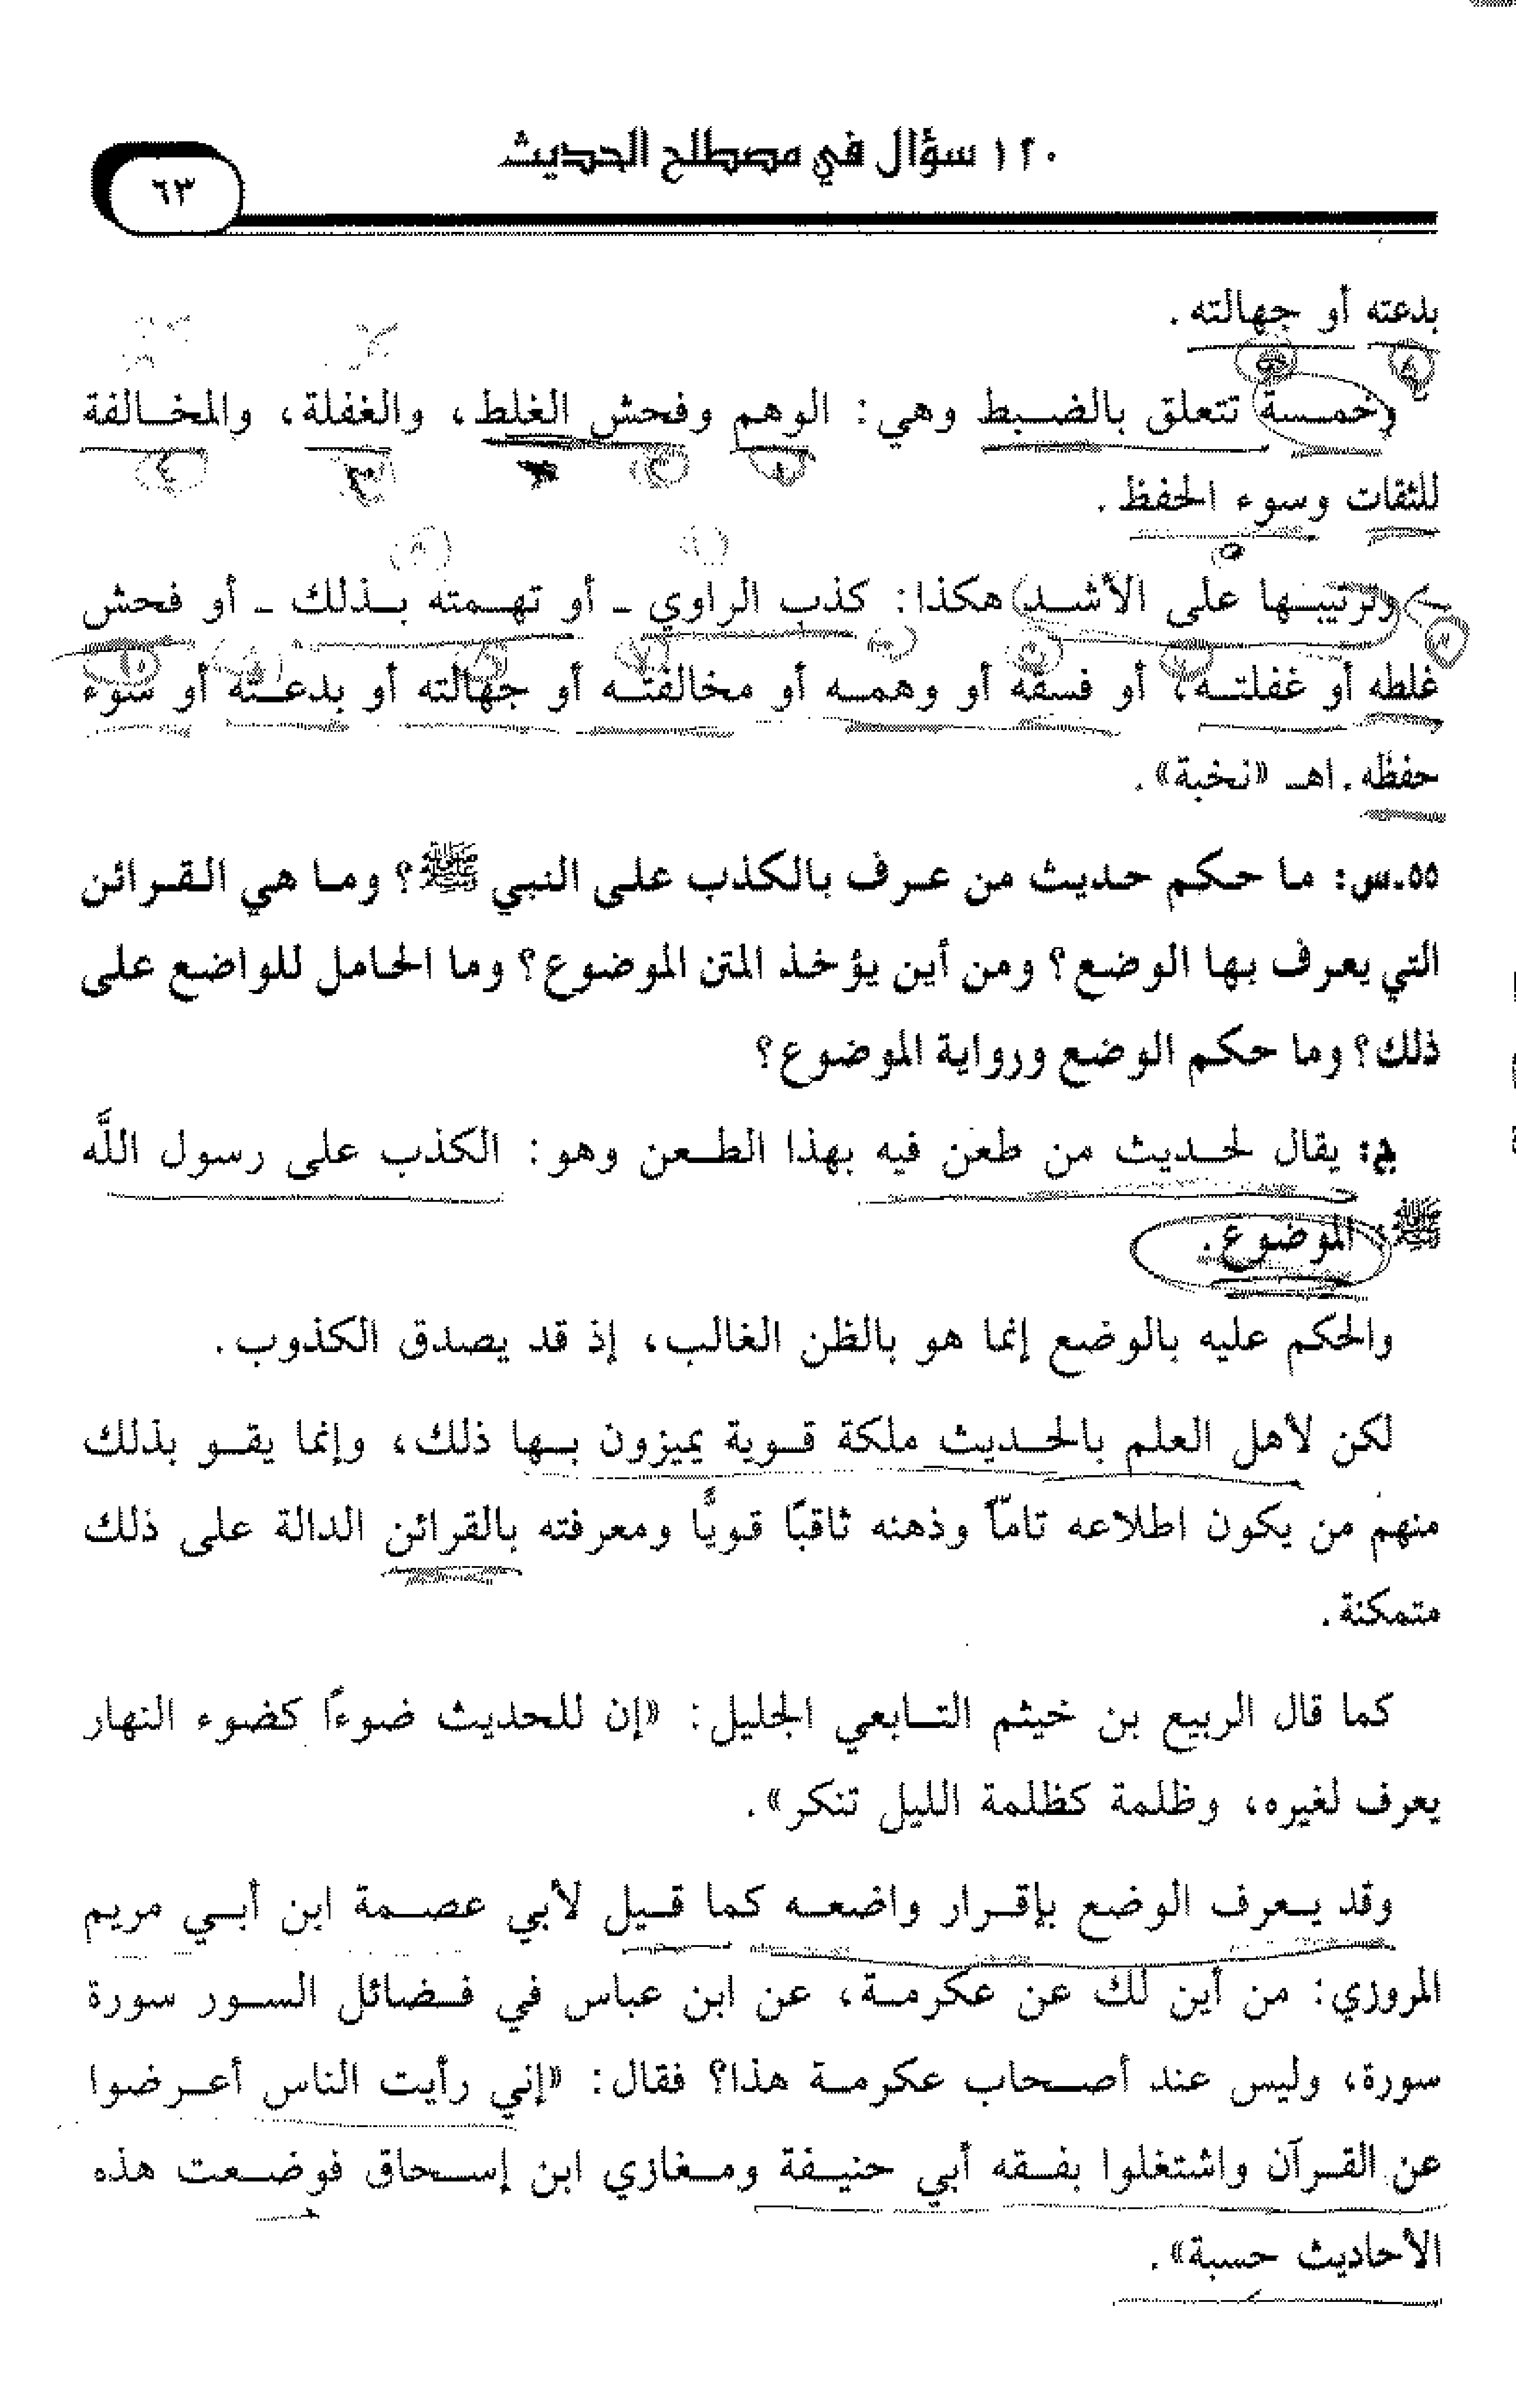 ١٢٠ سؤال في مصطلح الحديث
٦٣
بدعته أو جهالته.
وخمسة تتعلق بالضبط وهي: الوهم وفحش الغلط، والغفلة، والمخالفة
للثقات وسوء الحفظ.
وترتيبها على الأشد هكذا: كذب الراوي ـ أو تهمته بذلك ـ أو فحش
غلطه أو غفلته، أو فسقه أو وهمه أو مخالفته أو جهالته أو بدعته أو سوء
حفظه. اهـ «نخبة».
٥٥ـ س: ما حكم حديث من عرف بالكذب على النبي ﷺ؟ وما هي القرائن
التي يعرف بها الوضع؟ ومن أين يؤخذ المتن الموضوع؟ وما الحامل للواضع على
ذلك؟ وما حكم الوضع ورواية الموضوع؟
ج: يقال لحديث من طعن فيه بهذا الطعن وهو: الكذب على رسول اللَّه
ﷺ: الموضوع.
والحكم عليه بالوضع إنما هو بالظن الغالب، إذ قد يصدق الكذوب.
لكن لأهل العلم بالحديث ملكة قوية يميزون بها ذلك، وإنما يقو بذلك
منهم من يكون اطلاعه تامّاً وذهنه ثاقبًا قويًّا ومعرفته بالقرائن الدالة على ذلك
متمكنة.
كما قال الربيع بن خيثم التابعي الجليل: «إن للحديث ضوءًا كضوء النهار
يعرف لغيره، وظلمة كظلمة الليل تنكر».
وقد يعرف الوضع بإقرار واضعه كما قيل لأبي عصمة ابن أبي مريم
المروزي: من أين لك عن عكرمة، عن ابن عباس في فضائل السور سورة
سورة، وليس عند أصحاب عكرمة هذا؟ فقال: «إني رأيت الناس أعرضوا
عن القرآن واشتغلوا بفقه أبي حنيفة ومغازي ابن إسحاق فوضعت هذه
الأحاديث حسبة».